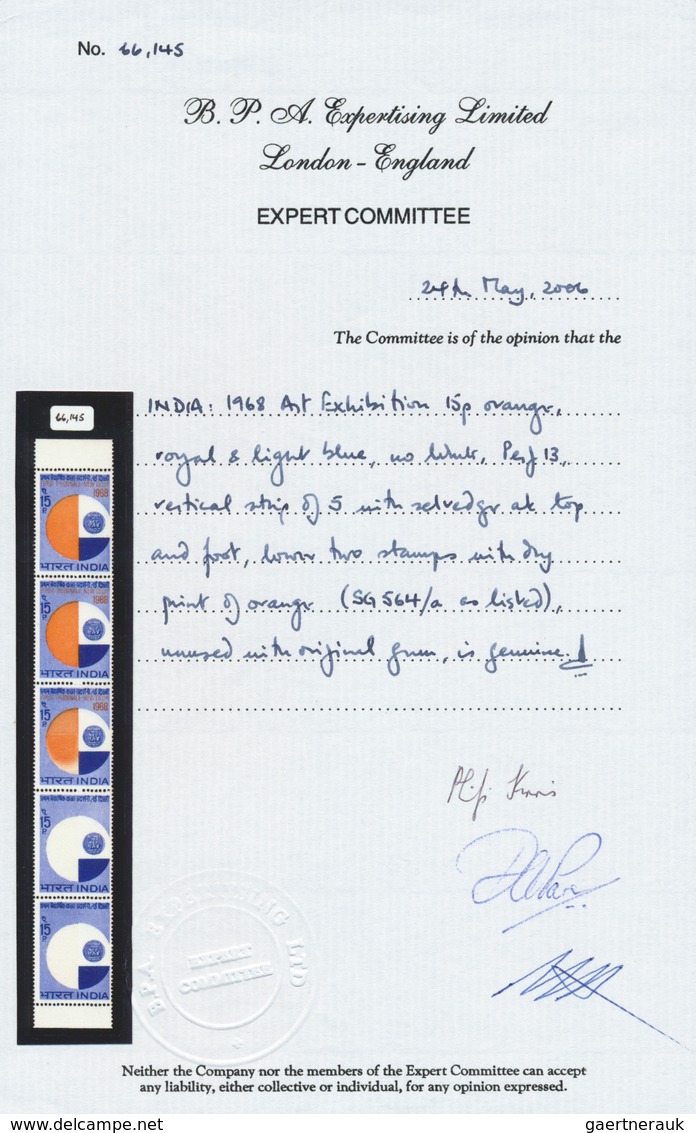 No. 66,145
B. P. A. Expertising Limited
London - England
EXPERT COMMITTEE
24th May, 2006
The Committee is of the opinion that the
66,145
INDIA: 1968 Art Exhibition 15p orange,
royal & light blue, no wmk, Perf 13,
vertical strip of 5 with selvedge at top
and foot, lower two stamps with dry
print of orange (SG 564/a as listed),
unused with original gum, is genuine.
1968
15
भारत INDIA
1968
15
भारत INDIA
1968
15
भारत INDIA
15
भारत INDIA
15
भारत INDIA
B.P.A. EXPERTISING LTD
EXPERT
COMMITTEE
Neither the Company nor the members of the Expert Committee can accept
any liability, either collective or individual, for any opinion expressed.
www.delcampe.net
gaertnerauk